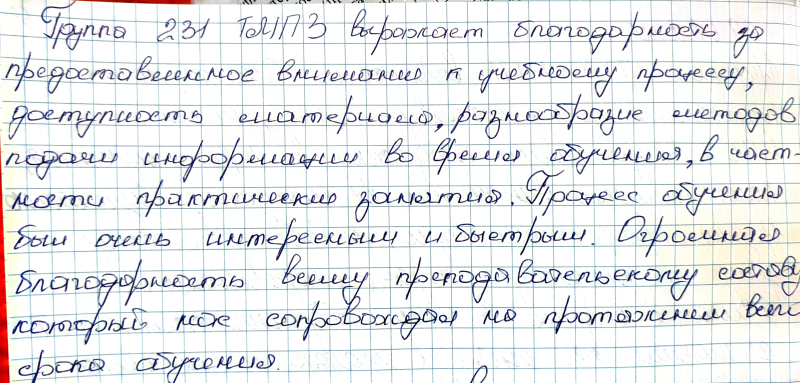 Группа 231 ТМПЗ выражает благодарность за
предоставленное внимание к учебному процессу,
доступность материала, разнообразие методов
подачи информации во время обучения, в част-
ности практические занятия. Процесс обучения
был очень интересным и быстрым. Огромная
благодарность всему преподавательскому составу
который нас сопровождал на протяжении всего
срока обучения.